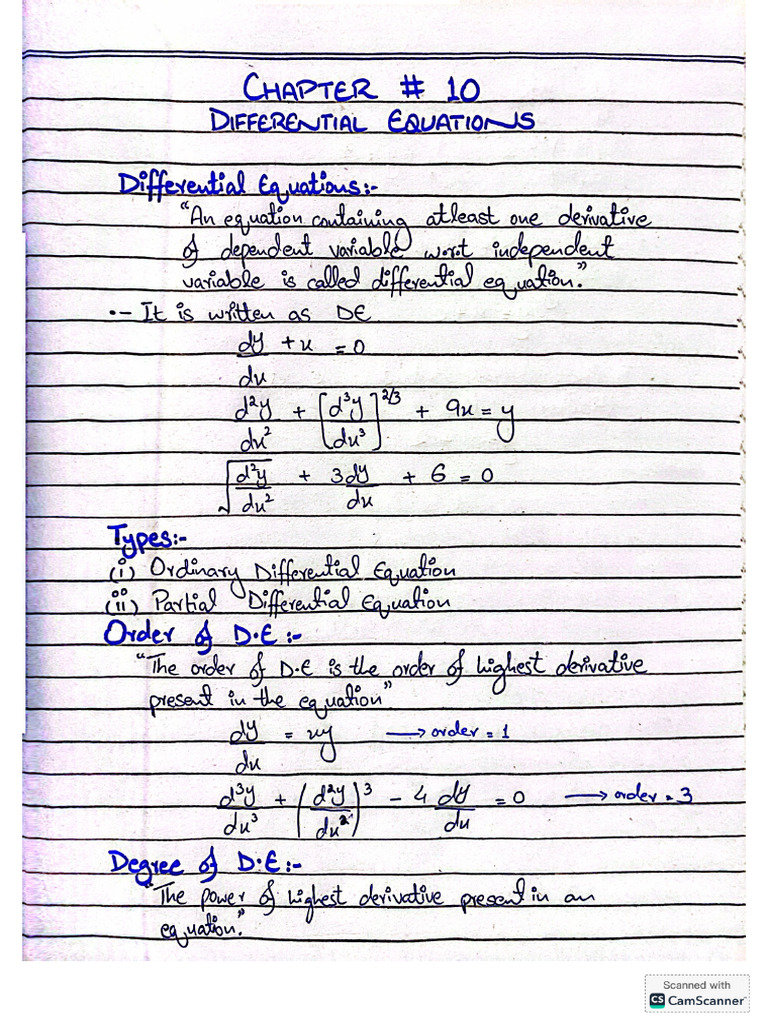 CHAPTER # 10
DIFFERENTIAL EQUATIONS
Differential Equations:-
"An equation containing atleast one derivative
of dependent variable w.r.t independent
variable is called differential equation."
•– It is written as DE
dy/dx + x = 0
d²y/dx² + [d³y/dx³]^2/3 + 9x = y
√(d²y/dx²) + 3dy/dx + 6 = 0
Types:-
(i) Ordinary Differential Equation
(ii) Partial Differential Equation
Order of D.E :-
"The order of D.E is the order of highest derivative
present in the equation"
dy/dx = xy → order = 1
d³y/dx³ + (d²y/dx²)³ - 4 dy/dx = 0 → order = 3
Degree of D.E:-
"The power of highest derivative present in an
equation."
Scanned with
CS CamScanner